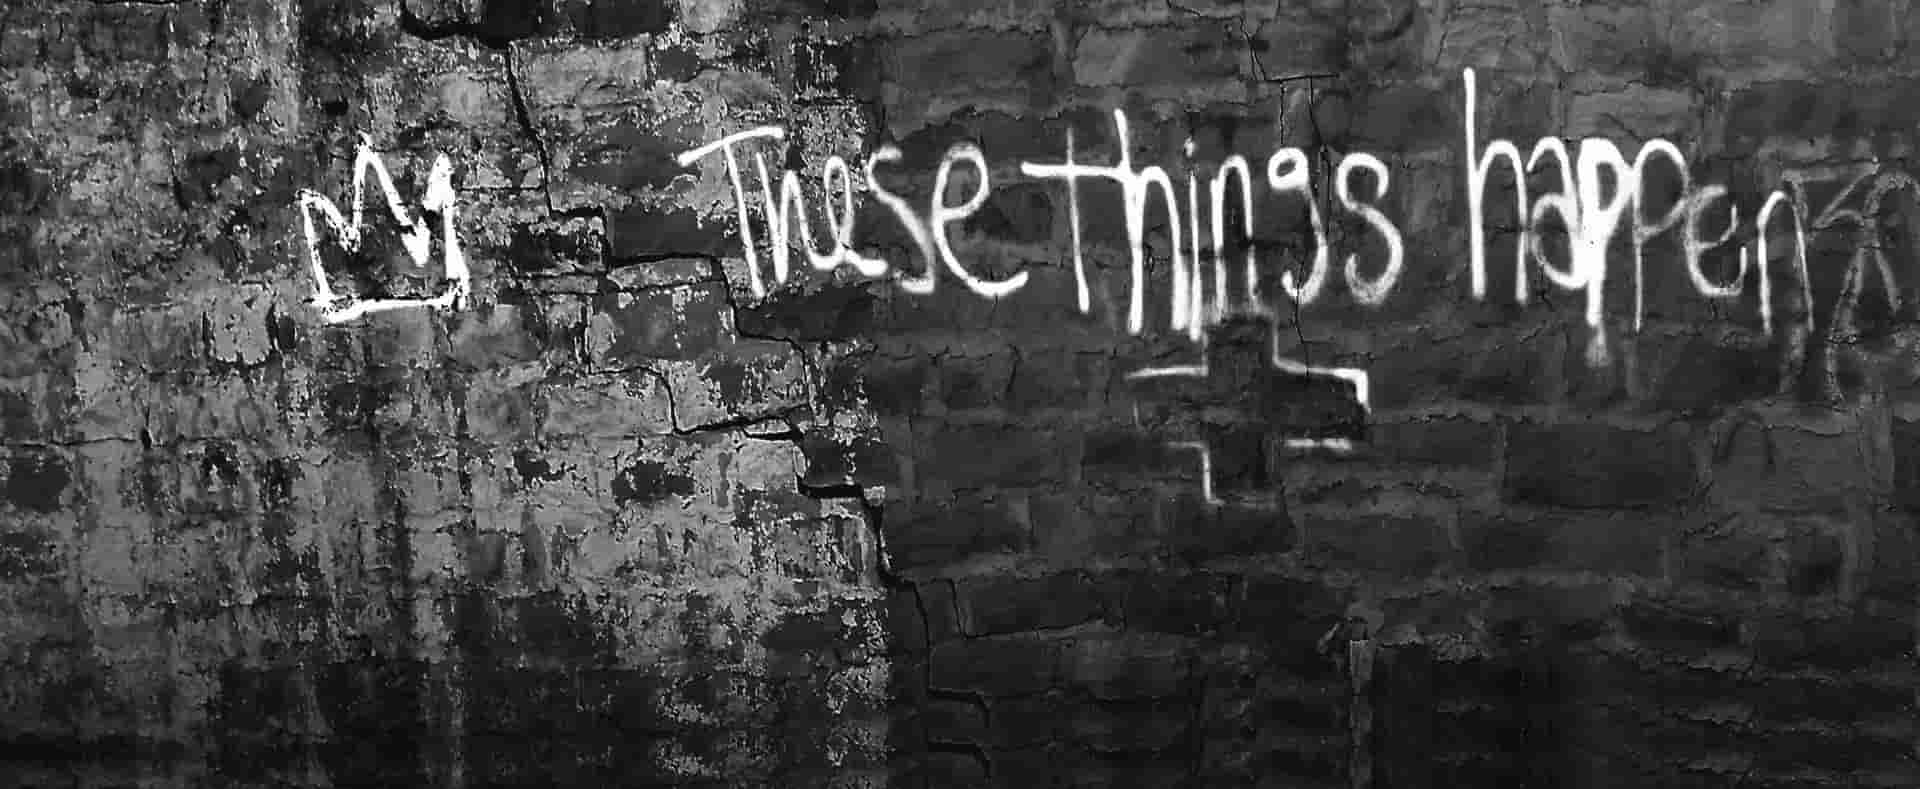 These things happen